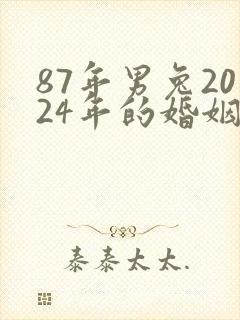 87年男兔20
24年的婚姻
泰泰太太.